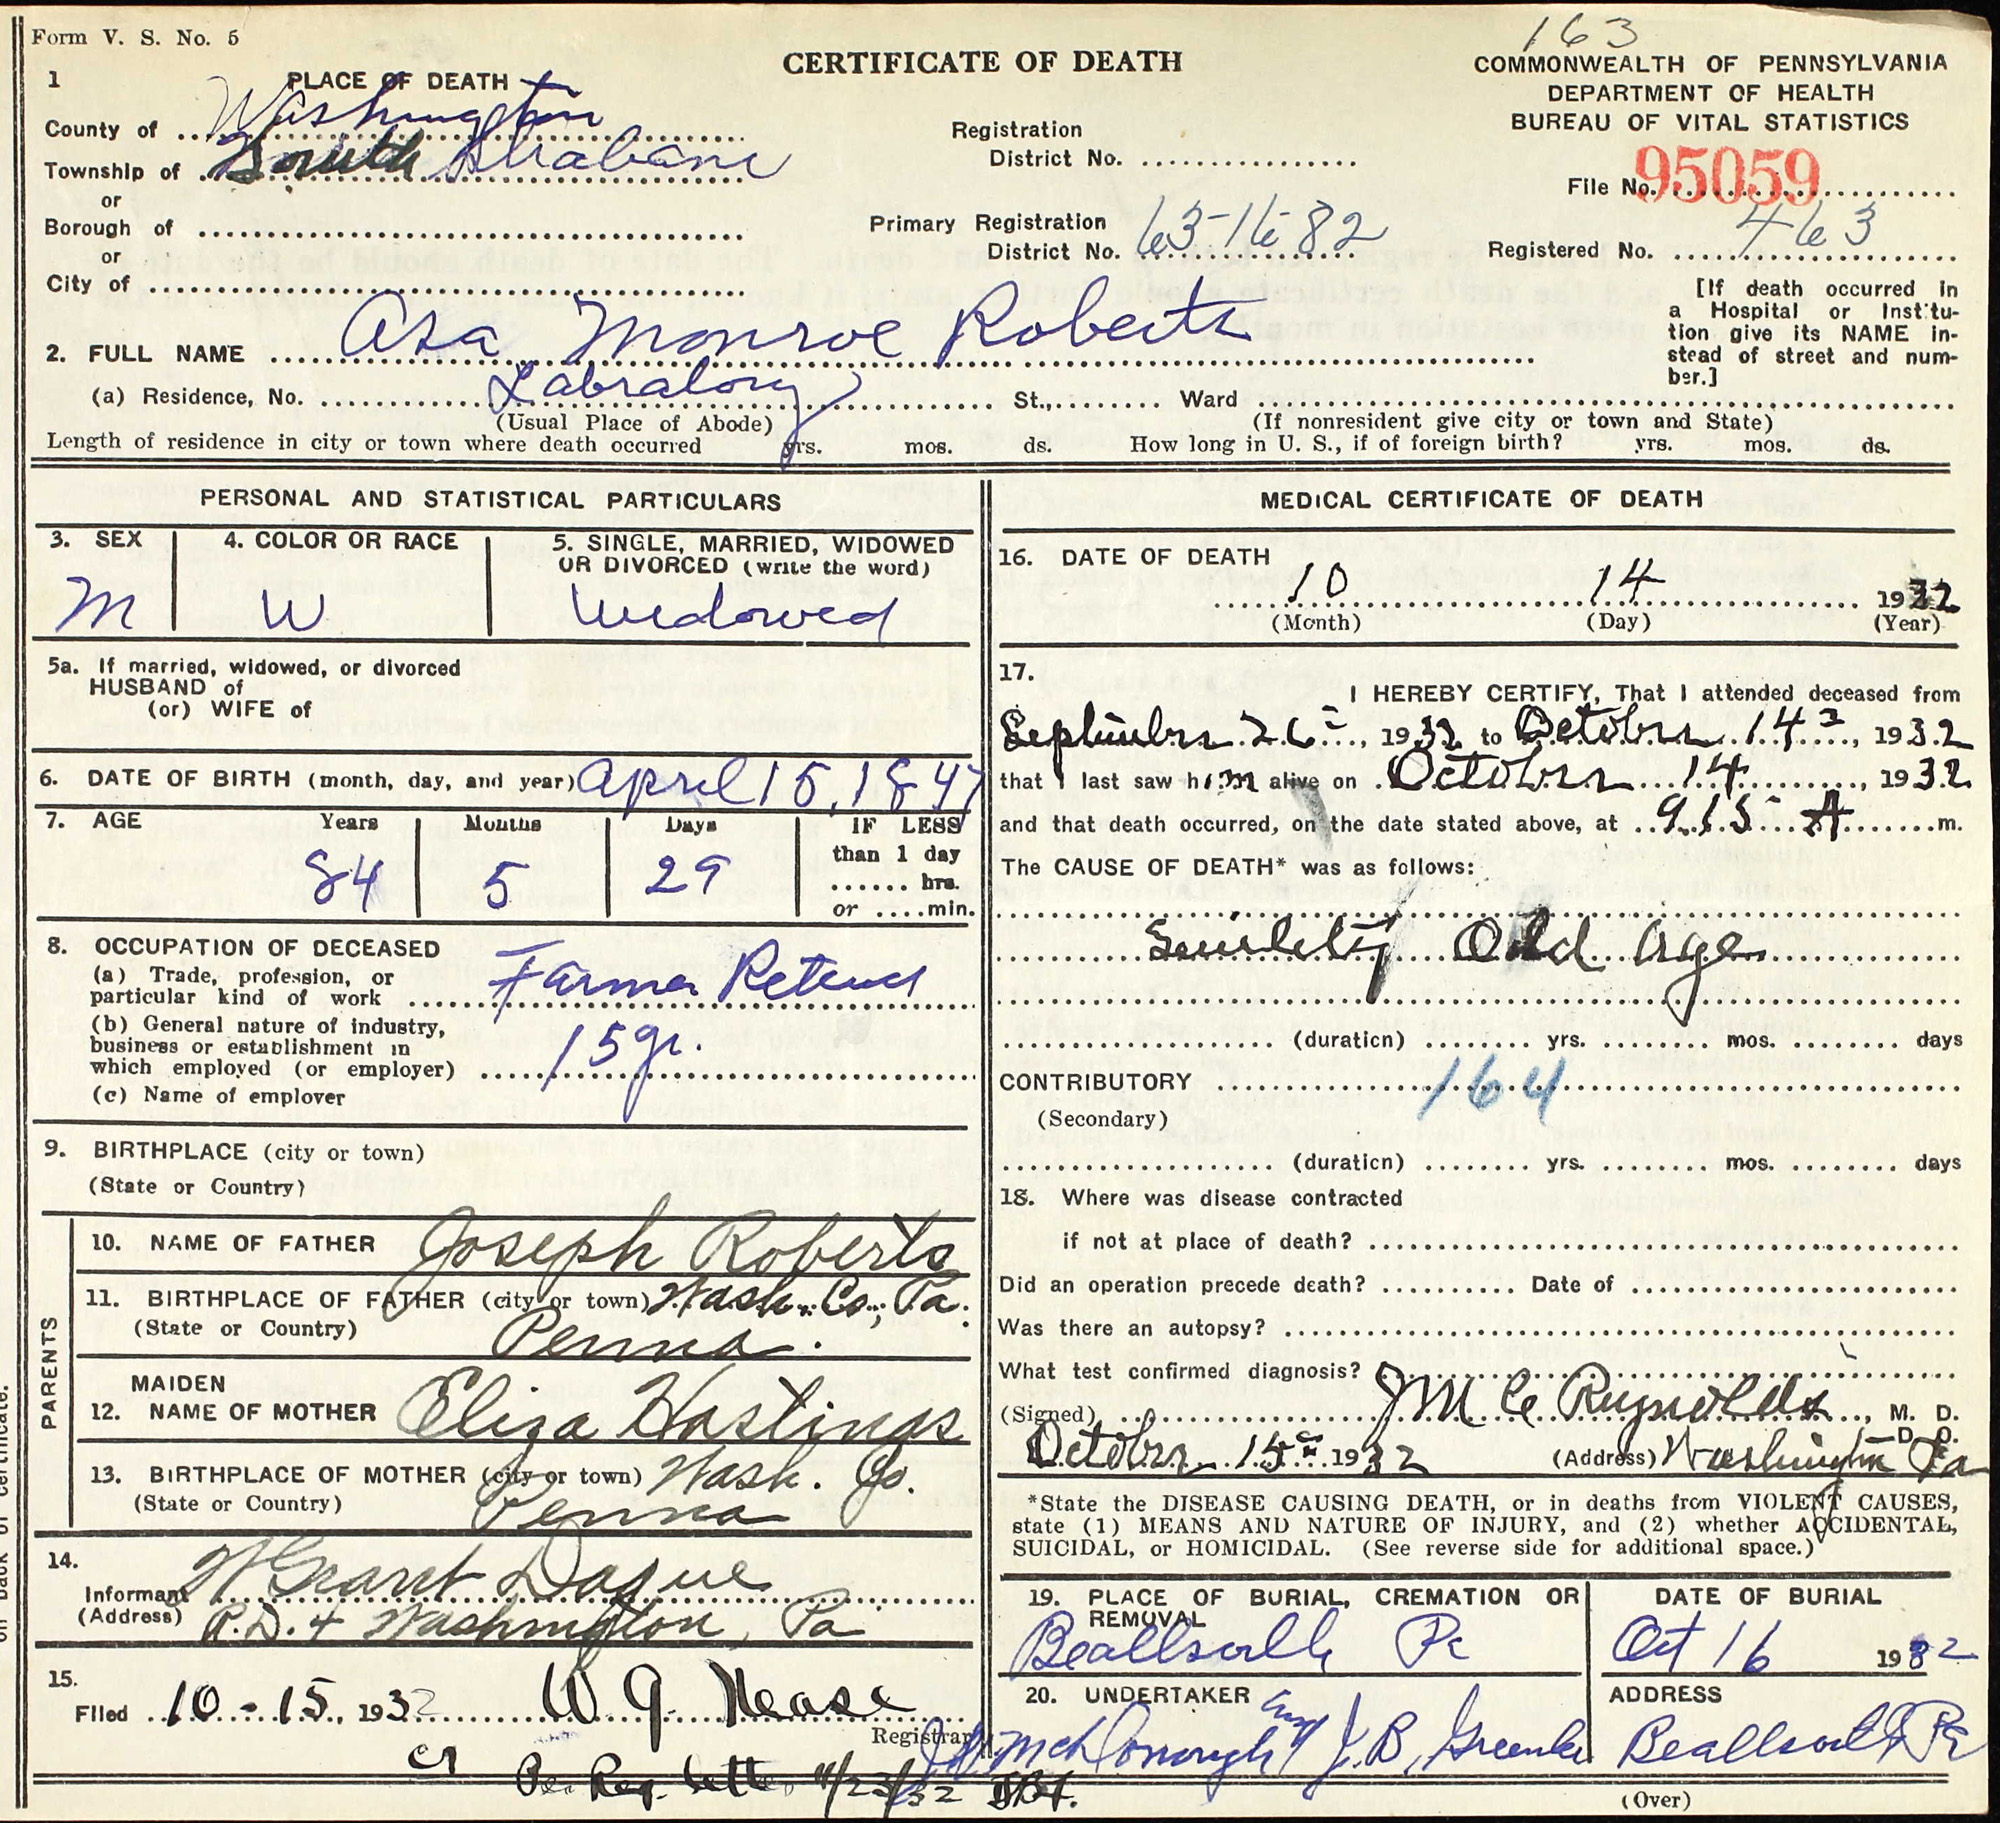 163
Form V. S. No. 5
CERTIFICATE OF DEATH
COMMONWEALTH OF PENNSYLVANIA
DEPARTMENT OF HEALTH
BUREAU OF VITAL STATISTICS
1 PLACE OF DEATH
County of Washington
Township of South Strabane
or
Borough of
or
City of
Registration
District No.
File No. 95059
Primary Registration
District No. 63-16-82
Registered No. 463
[If death occurred in
a Hospital or Institu-
tion give its NAME in-
stead of street and num-
ber.]
2. FULL NAME Asa Monroe Roberts
(a) Residence, No. Labratory St., Ward
(Usual Place of Abode) (If nonresident give city or town and State)
Length of residence in city or town where death occurred yrs. mos. ds. How long in U. S., if of foreign birth? yrs. mos. ds.
PERSONAL AND STATISTICAL PARTICULARS
3. SEX 4. COLOR OR RACE 5. SINGLE, MARRIED, WIDOWED
OR DIVORCED (write the word)
M W Widowed
5a. If married, widowed, or divorced
HUSBAND of
(or) WIFE of
6. DATE OF BIRTH (month, day, and year) April 15, 1847
7. AGE Years Months Days IF LESS
than 1 day
hrs.
or min.
84 5 29
8. OCCUPATION OF DECEASED
(a) Trade, profession, or
particular kind of work Farmer Retired
(b) General nature of industry,
business or establishment in
which employed (or employer) 15 yr.
(c) Name of employer
9. BIRTHPLACE (city or town)
(State or Country)
PARENTS
10. NAME OF FATHER Joseph Roberts
11. BIRTHPLACE OF FATHER (city or town) Wash. Co., Pa.
(State or Country) Penna.
MAIDEN
12. NAME OF MOTHER Eliza Hastings
13. BIRTHPLACE OF MOTHER (city or town) Wash. Co.
(State or Country) Penna
14.
Informant W Grant Dague
(Address) R.D. 4 Washington, Pa
15.
Filed 10-15, 1932 W G Nease
Registrar
Per Reg. letter 11/23/32
MEDICAL CERTIFICATE OF DEATH
16. DATE OF DEATH
10 14 1932
(Month) (Day) (Year)
17.
I HEREBY CERTIFY, That I attended deceased from
September 26, 1932 to October 14, 1932
that I last saw him alive on October 14, 1932
and that death occurred, on the date stated above, at 9.15 A m.
The CAUSE OF DEATH* was as follows:
Senility Old Age
(duration) yrs. mos. days
CONTRIBUTORY 164
(Secondary)
(duration) yrs. mos. days
18. Where was disease contracted
if not at place of death?
Did an operation precede death? Date of
Was there an autopsy?
What test confirmed diagnosis?
(Signed) J M C Reynolds, M. D.
D. O.
October 15 1932 (Address) Washington Pa
*State the DISEASE CAUSING DEATH, or in deaths from VIOLENT CAUSES,
state (1) MEANS AND NATURE OF INJURY, and (2) whether ACCIDENTAL,
SUICIDAL, or HOMICIDAL. (See reverse side for additional space.)
19. PLACE OF BURIAL, CREMATION OR
REMOVAL
Beallsville Pa
DATE OF BURIAL
Oct 16 1932
20. UNDERTAKER
McDonough J. B. Greenlee
ADDRESS
Beallsville Pa
(Over)